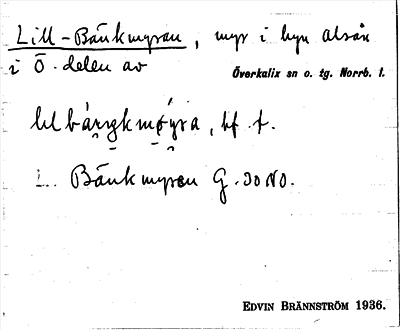 Lill-Bänkmyran, myr i byn Alsån
i Ö. delen av Överkalix sn o. tg. Norrb. l.
bf. f.
L. Bänkmyran G. 30 NO.
EDVIN BRÄNNSTRÖM 1936.